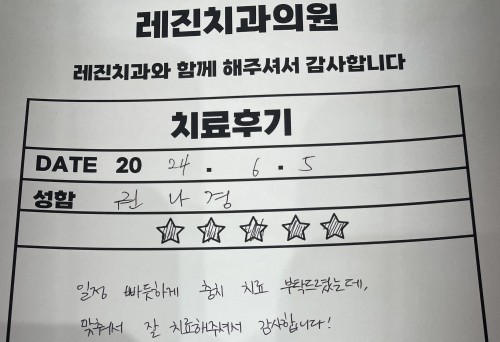 레진치과의원
레진치과와 함께 해주셔서 감사합니다
치료후기
DATE 20 24 . 6 . 5
성함 권 나 경
일정 빠듯하게 충치 치료 부탁드렸는데,
맞춰서 잘 치료해주셔서 감사합니다!